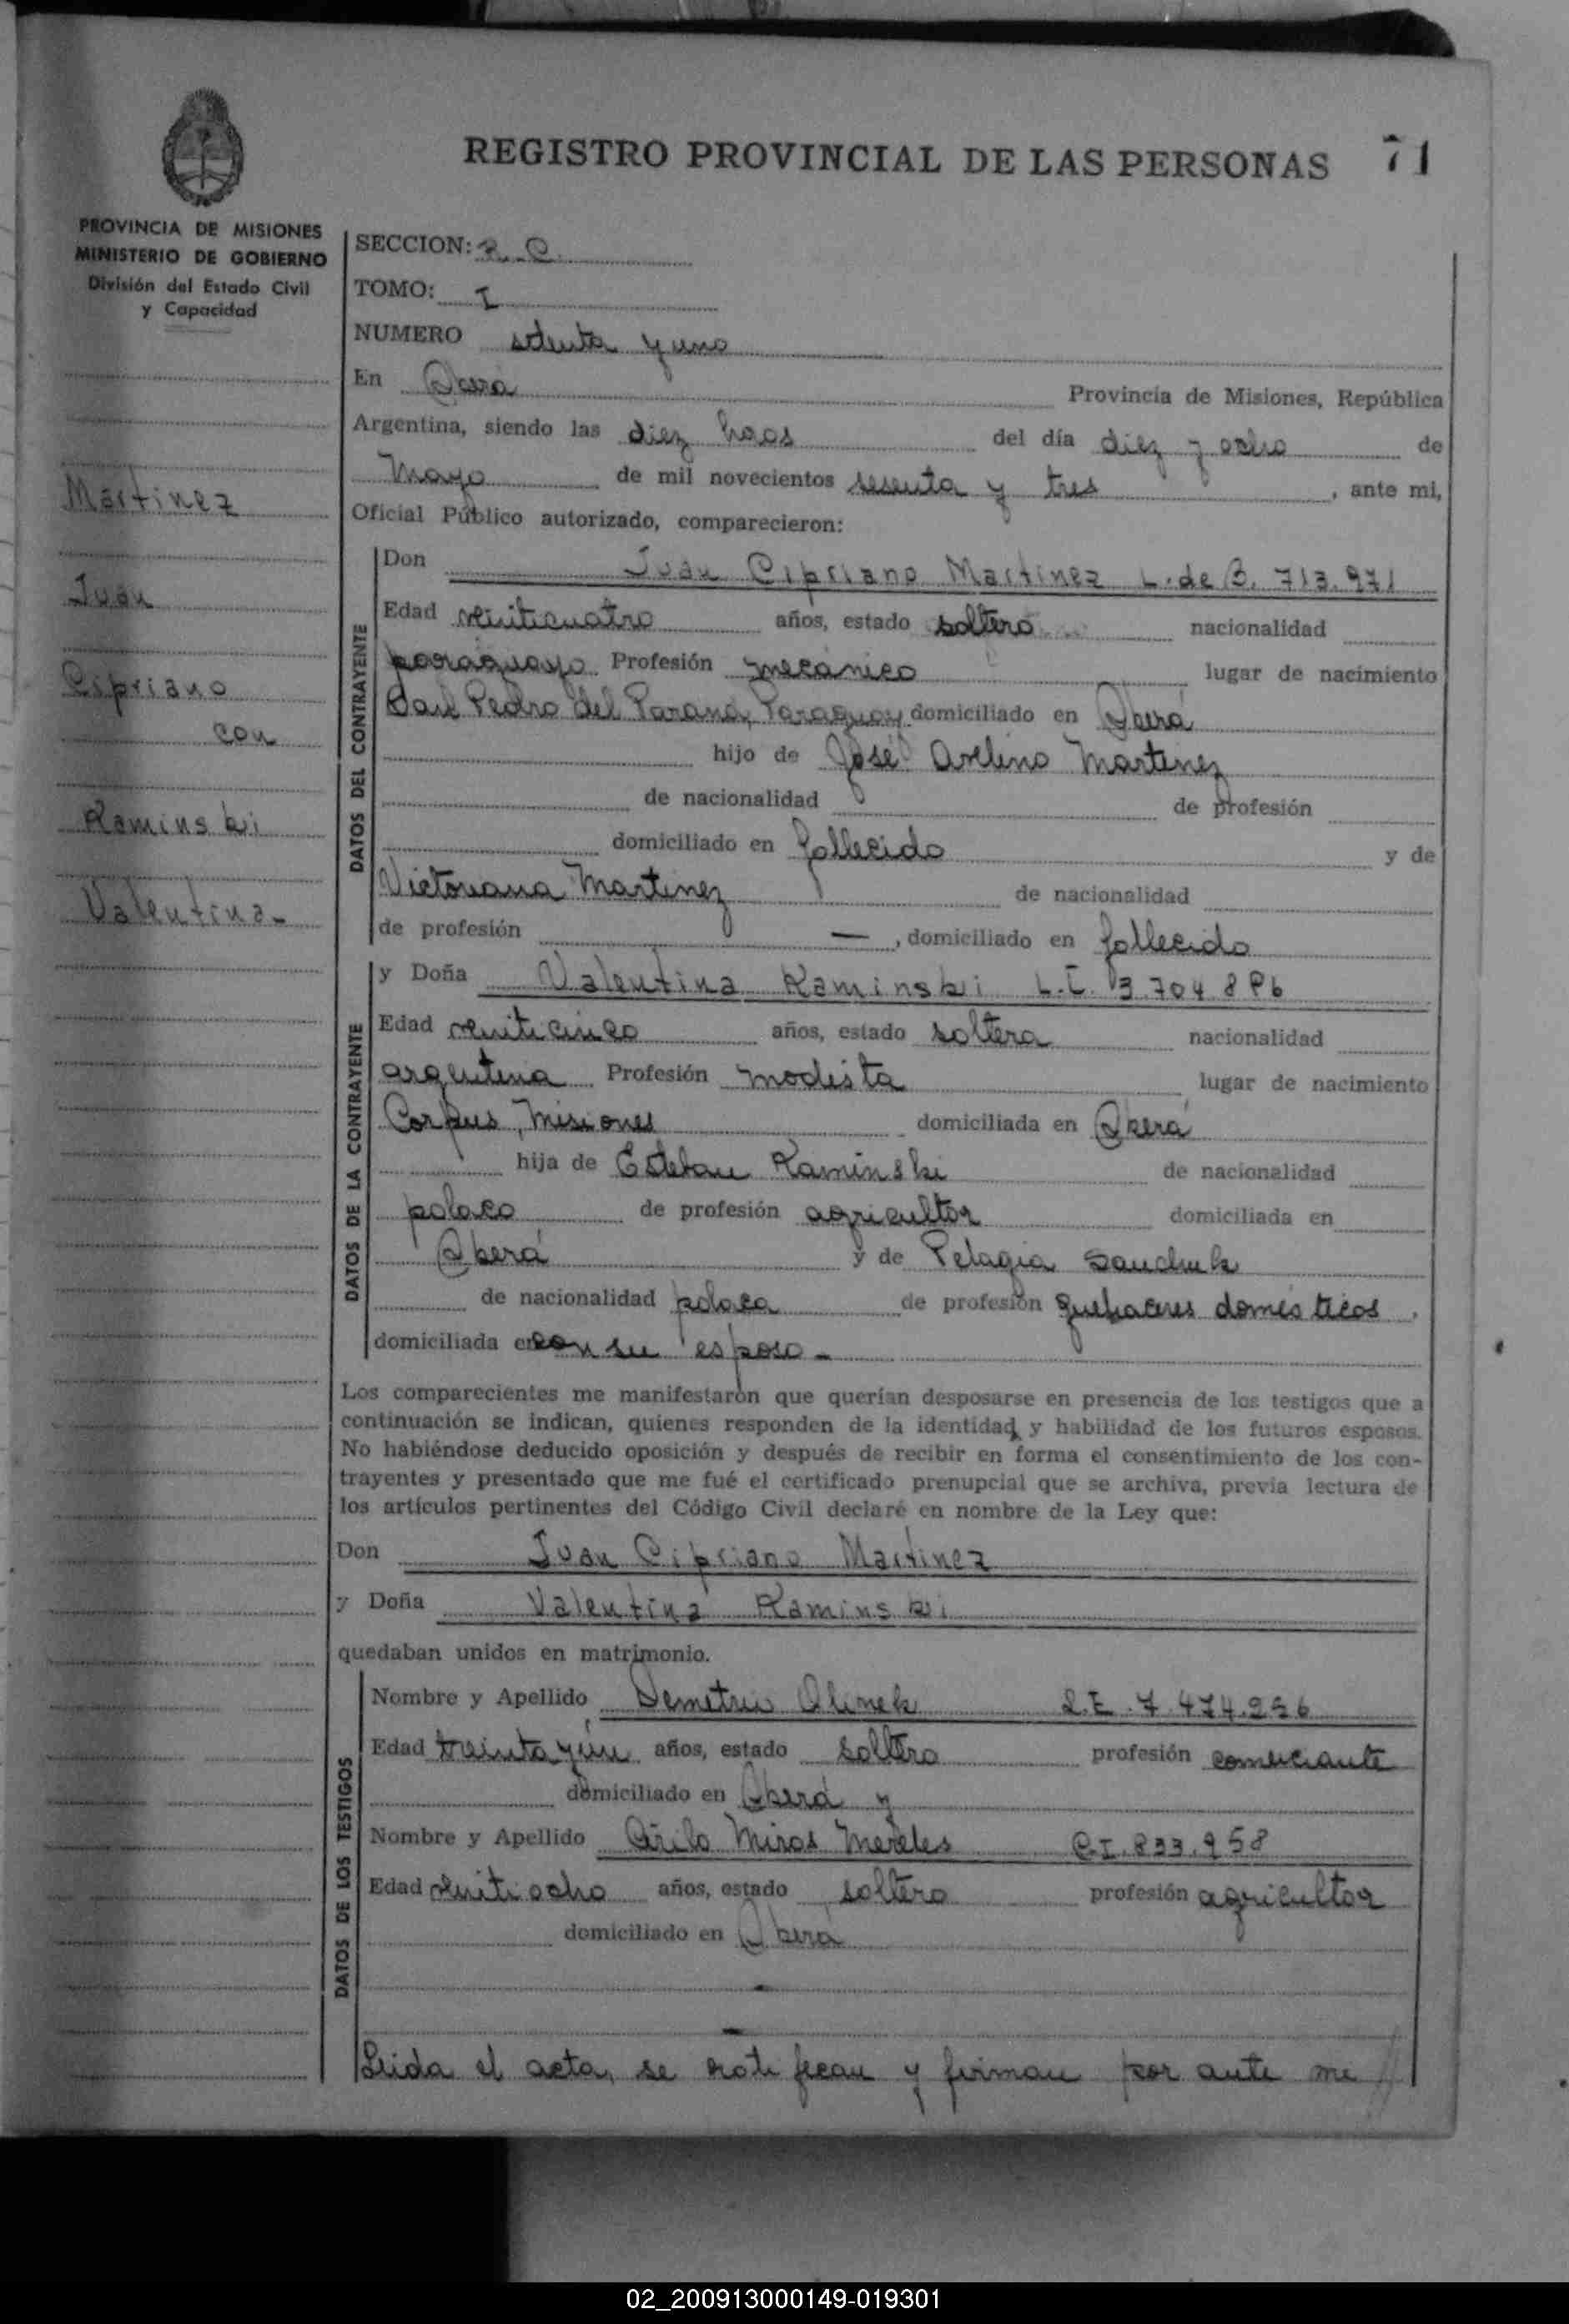 REGISTRO PROVINCIAL DE LAS PERSONAS 71
PROVINCIA DE MISIONES
MINISTERIO DE GOBIERNO
División del Estado Civil
y Capacidad
Martinez
Juan
Cipriano
con
Kaminski
Valentina-
SECCION: R.C.
TOMO: I
NUMERO setenta y uno
En Oberá Provincia de Misiones, República
Argentina, siendo las diez horas del día diez y ocho de
Mayo de mil novecientos sesenta y tres, ante mi,
Oficial Público autorizado, comparecieron:
DATOS DEL CONTRAYENTE
Don Juan Cipriano Martinez L. de 3.713.971
Edad veinticuatro años, estado soltero nacionalidad
paraguayo Profesión mecánico lugar de nacimiento
San Pedro del Paraná, Paraguay domiciliado en Oberá
hijo de José Avelino Martinez
de nacionalidad de profesión
domiciliado en fallecido y de
Victoriana Martinez de nacionalidad
de profesión —, domiciliado en fallecido
DATOS DE LA CONTRAYENTE
y Doña Valentina Kaminski L.C. 3.704.896
Edad veinticinco años, estado soltera nacionalidad
argentina Profesión modista lugar de nacimiento
Corpus, Misiones domiciliada en Oberá
hija de Esteban Kaminski de nacionalidad
polaco de profesión agricultor domiciliada en
Oberá y de Pelagia Sauchuk
de nacionalidad polaca de profesión quehaceres domésticos.
domiciliada en con su esposo -
Los comparecientes me manifestarón que querían desposarse en presencia de los testigos que a
continuación se indican, quienes responden de la identidad y habilidad de los futuros esposos.
No habiéndose deducido oposición y después de recibir en forma el consentimiento de los con-
trayentes y presentado que me fué el certificado prenupcial que se archiva, previa lectura de
los artículos pertinentes del Código Civil declaré en nombre de la Ley que:
Don Juan Cipriano Martinez
y Doña Valentina Kaminski
quedaban unidos en matrimonio.
DATOS DE LOS TESTIGOS
Nombre y Apellido Demetrio Olinek L.E. 7.474.256
Edad treinta y un años, estado soltero profesión comerciante
domiciliado en Oberá y
Nombre y Apellido Cirilo Miros Mereles C.I. 833.958
Edad veintiocho años, estado soltero profesión agricultor
domiciliado en Oberá
Leida el acta, se ratifican y firman por ante mi
02_200913000149-019301